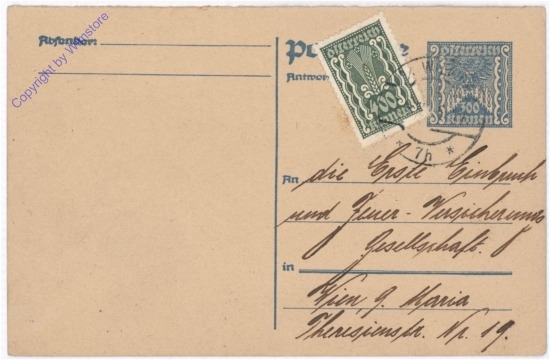 Absender:
Copyright by Wienstore
Antwor
österreich
400
Kronen
österreich
300
Kronen
* 7h *
An die Erste Einbruch
und Feuer-Versicherungs
Gesellschaft.
in
Wien, 9. Maria
Theresienstr. Nr. 19.